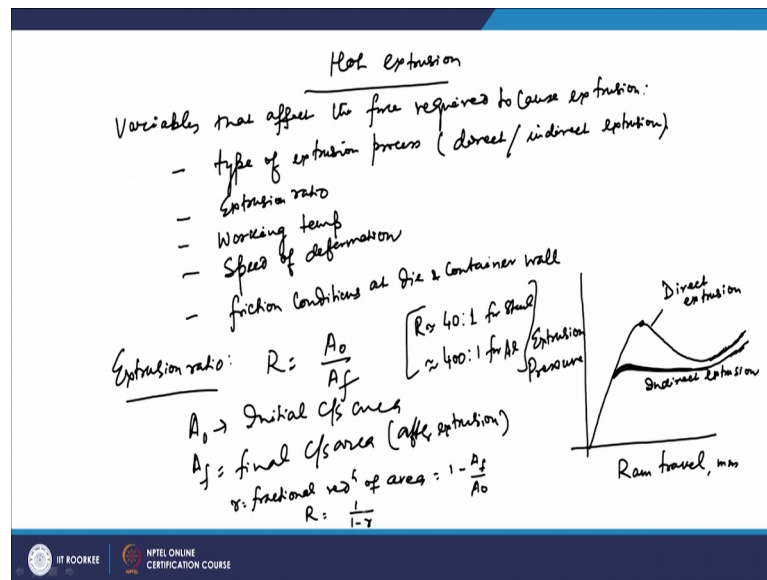 Hot extrusion
Variables that affect the force required to cause extrusion:
- type of extrusion process (direct/indirect extrusion)
- Extrusion ratio
- Working temp
- Speed of deformation
- friction conditions at die & container wall
Extrusion ratio: R = A0/Af
[R≈ 40:1 for Steel
≈ 400:1 for Al]
A0 → Initial c/s area
Af = final c/s area (after extrusion)
r = fractional redn of area = 1 - Af/A0
R = 1/1-r
Extrusion
Pressure
Direct
extrusion
Indirect extrusion
Ram travel, mm
IIT ROORKEE
NPTEL ONLINE
CERTIFICATION COURSE